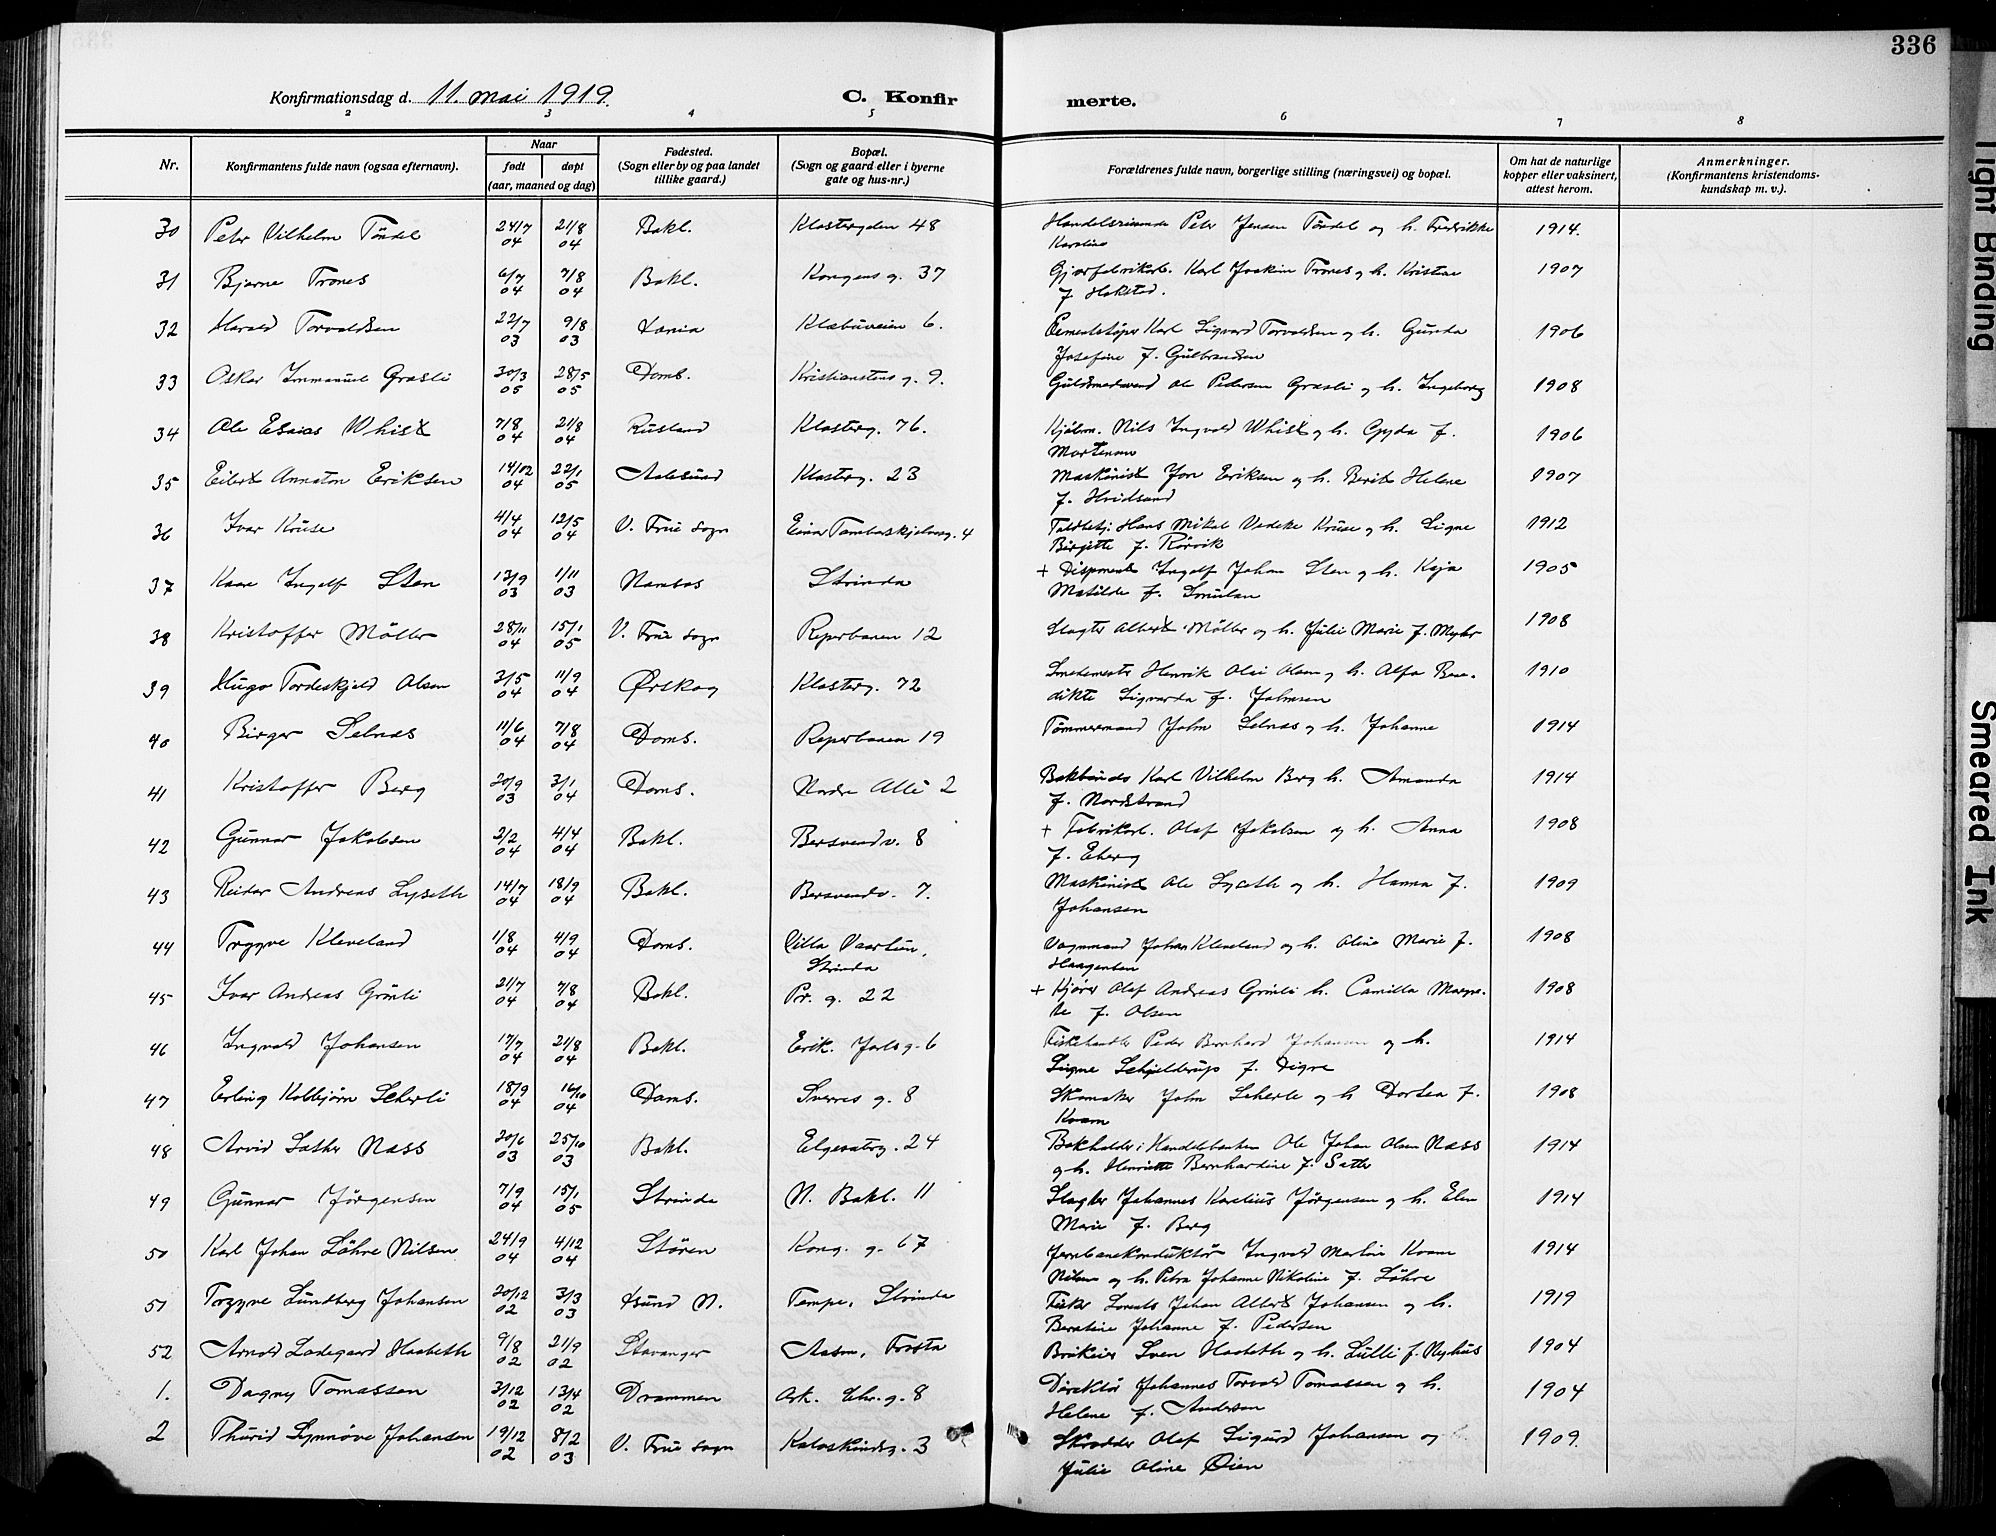 336
Konfirmationsdag d. 11. mai 1919. C. Konfir merte.
2 3 4 5 6 7 8
Nr. Konfirmantens fulde navn (ogsaa efternavn). Naar født døpt (aar, maaned og dag) Fødested. (Sogn eller by og paa landet tillike gaard.) Bopæl. (Sogn og gaard eller i byerne gate og hus-nr.) Forældrenes fulde navn, borgerlige stilling (næringsvei) og bopæl. Om hat de naturlige kopper eller vaksinert, attest herom. Anmerkninger. (Konfirmantens kristendoms- kundskap m. v.).
30 Peter Vilhelm Töndel 24/7 04 21/8 04 Bakl. Klostergaten 48 Handelsreisende Peter Jensen Töndel og h. Fredrikke 1914.
Karoline
31 Bjarne Trones 6/7 04 7/8 04 Bakl. Kongens g. 37 Karl Joakim Trones og h. Kristine 1907
f. Hokstad.
32 Harald Torvaldsen 22/7 03 9/8 03 Klæbuveien 6. Cementstöper Karl Sigvard Torvaldsen og h. Gunda 1906
Josefine f. Gulbrandsen
33 Oskar Immanuel Græsli 30/3 05 28/5 05 Doms. Kristianstens g. 9. Guldsmedsvend Ole Pedersen Græsli og h. Ingeborg 1908
34 Ole Esaias Whist 7/8 04 21/8 04 Rusland Klosterg. 76. Kjøbm. Nils Ingvald Whist og h. Gyda f. 1906
Mortenson
35 Eilert Annaton Eriksen 14/02 04 22/1 05 Aalesund Klosterg. 23 Maskinist Jon Eriksen og h. Berit Helene 1907
f. Hvidsand
36 Ivar Kruse 4/4 04 12/5 04 V. Frue sogn Einar Tambarskjelvesg. 4 Toldbetj. Hans Mikal Vedeke Kruse og h. Signe 1912
Birgitte f. Rörvik
37 Kaare Ingolf Sten 13/9 03 1/11 03 Namsos Strinda + Disponent Ingolf Johan Sten og h. Kaja 1905
Matilde f.
38 Kristoffer Möller 28/11 04 15/1 05 V. Frue sogn Reperbanen 12 Slagter Albert Möller og h. Julie Marie f. Myhr 1908
39 Hugo Tordeskjold Olsen 3/5 04 11/9 04 Ørskog Klosterg. 72 Smedemester Henrik Olai Olsen og h. Alfa Bene- 1910
dikte Sigvarda f. Johnsen
40 Birger Selnæs 11/6 04 7/8 04 Doms. Reperbanen 19 Tömmermand John Selnæs og h. Johanne 1914
41 Kristoffer Berg 20/9 03 3/1 04 Doms. Nordre Allé 2 Karl Vilhelm Berg h. Amanda 1914
f. Nordstrand
42 Gunnar Jakobsen 2/2 04 4/4 04 Bakl. Bersvendv. 8 + Fabrikarb. Olaf Jakobsen og h. Anna 1908
f. Eberg
43 Reidar Andreas Lyseth 14/7 04 18/9 04 Bakl. Bersvendv. 7. Maskinist Ole Lyseth og h. Hanna f. 1909
Johansen
44 Trygve Kleveland 1/8 04 4/9 04 Doms. Villa Vaartun, Vognmand Johan Kleveland og h. Oline Marie f. 1908
Strinda Haagensen
45 Ivar Andreas Grönli 21/7 04 7/8 04 Bakl. Pr. g. 22 + Kjörer Olaf Andreas Grönli h. Camilla Margre- 1908
te f. Olsen
46 Ingvald Johansen 17/7 04 21/8 04 Bakl. Erik. Jarls g. 6 Fiskehandler Peder Bernhard Johansen og h. 1914
Signe Schjelderup f. Digre
47 Erling Kolbjörn Scherli 18/9 04 16/10 04 Doms. Sverres g. 8 Skomaker John Scherli og h Dortea f. 1908
Kvam
48 Arvid Sæther Næss 20/6 03 25/10 03 Bakl. Elgesæterg. 24 Bokholder i Handelsbanken Ole Johan Olsen Næss 1914
og h. Henriette Bernhardine f. Sæther
49 Gunnar Jörgensen 7/9 04 15/1 05 Strinda N. Bakl. 11 Slagter Johannes Karelius Jörgensen og h. Elen 1914
Marie f. Berg
50 Karl Johan Löhre Nilsen 24/9 04 4/12 04 Stören Kong. g. 67 Jernbanekonduktör Ingvald Martin Kvam 1914
Nilsen og h. Petra Johanne Nikoline f. Löhre
51 Trygve Lundberg Johansen 20/12 02 3/3 03 Tempe, Strinda Fisker Lorents Johan Albert Johansen og h. 1919
Beratine Johanne f. Pedersen
52 Arnold Ladegaard Haabeth 9/8 02 21/9 02 Stavanger Aasen, Frosta Sven Haabeth og h. Lulli f. Nyhus 1904
1. Dagny Tomassen 3/12 02 13/4 02 Drammen Ark. Chr. g. 8 Direktör Johannes Torvald Tomassen og h. 1904
Helene f. Andersen
2 Thurid Synnöve Johansen 19/12 02 8/2 03 V. Frue sogn Kalvskindsg. 3 Skrædder Olaf Sigurd Johansen og 1909.
Julie Oline Øien
Tight Binding
Smeared Ink